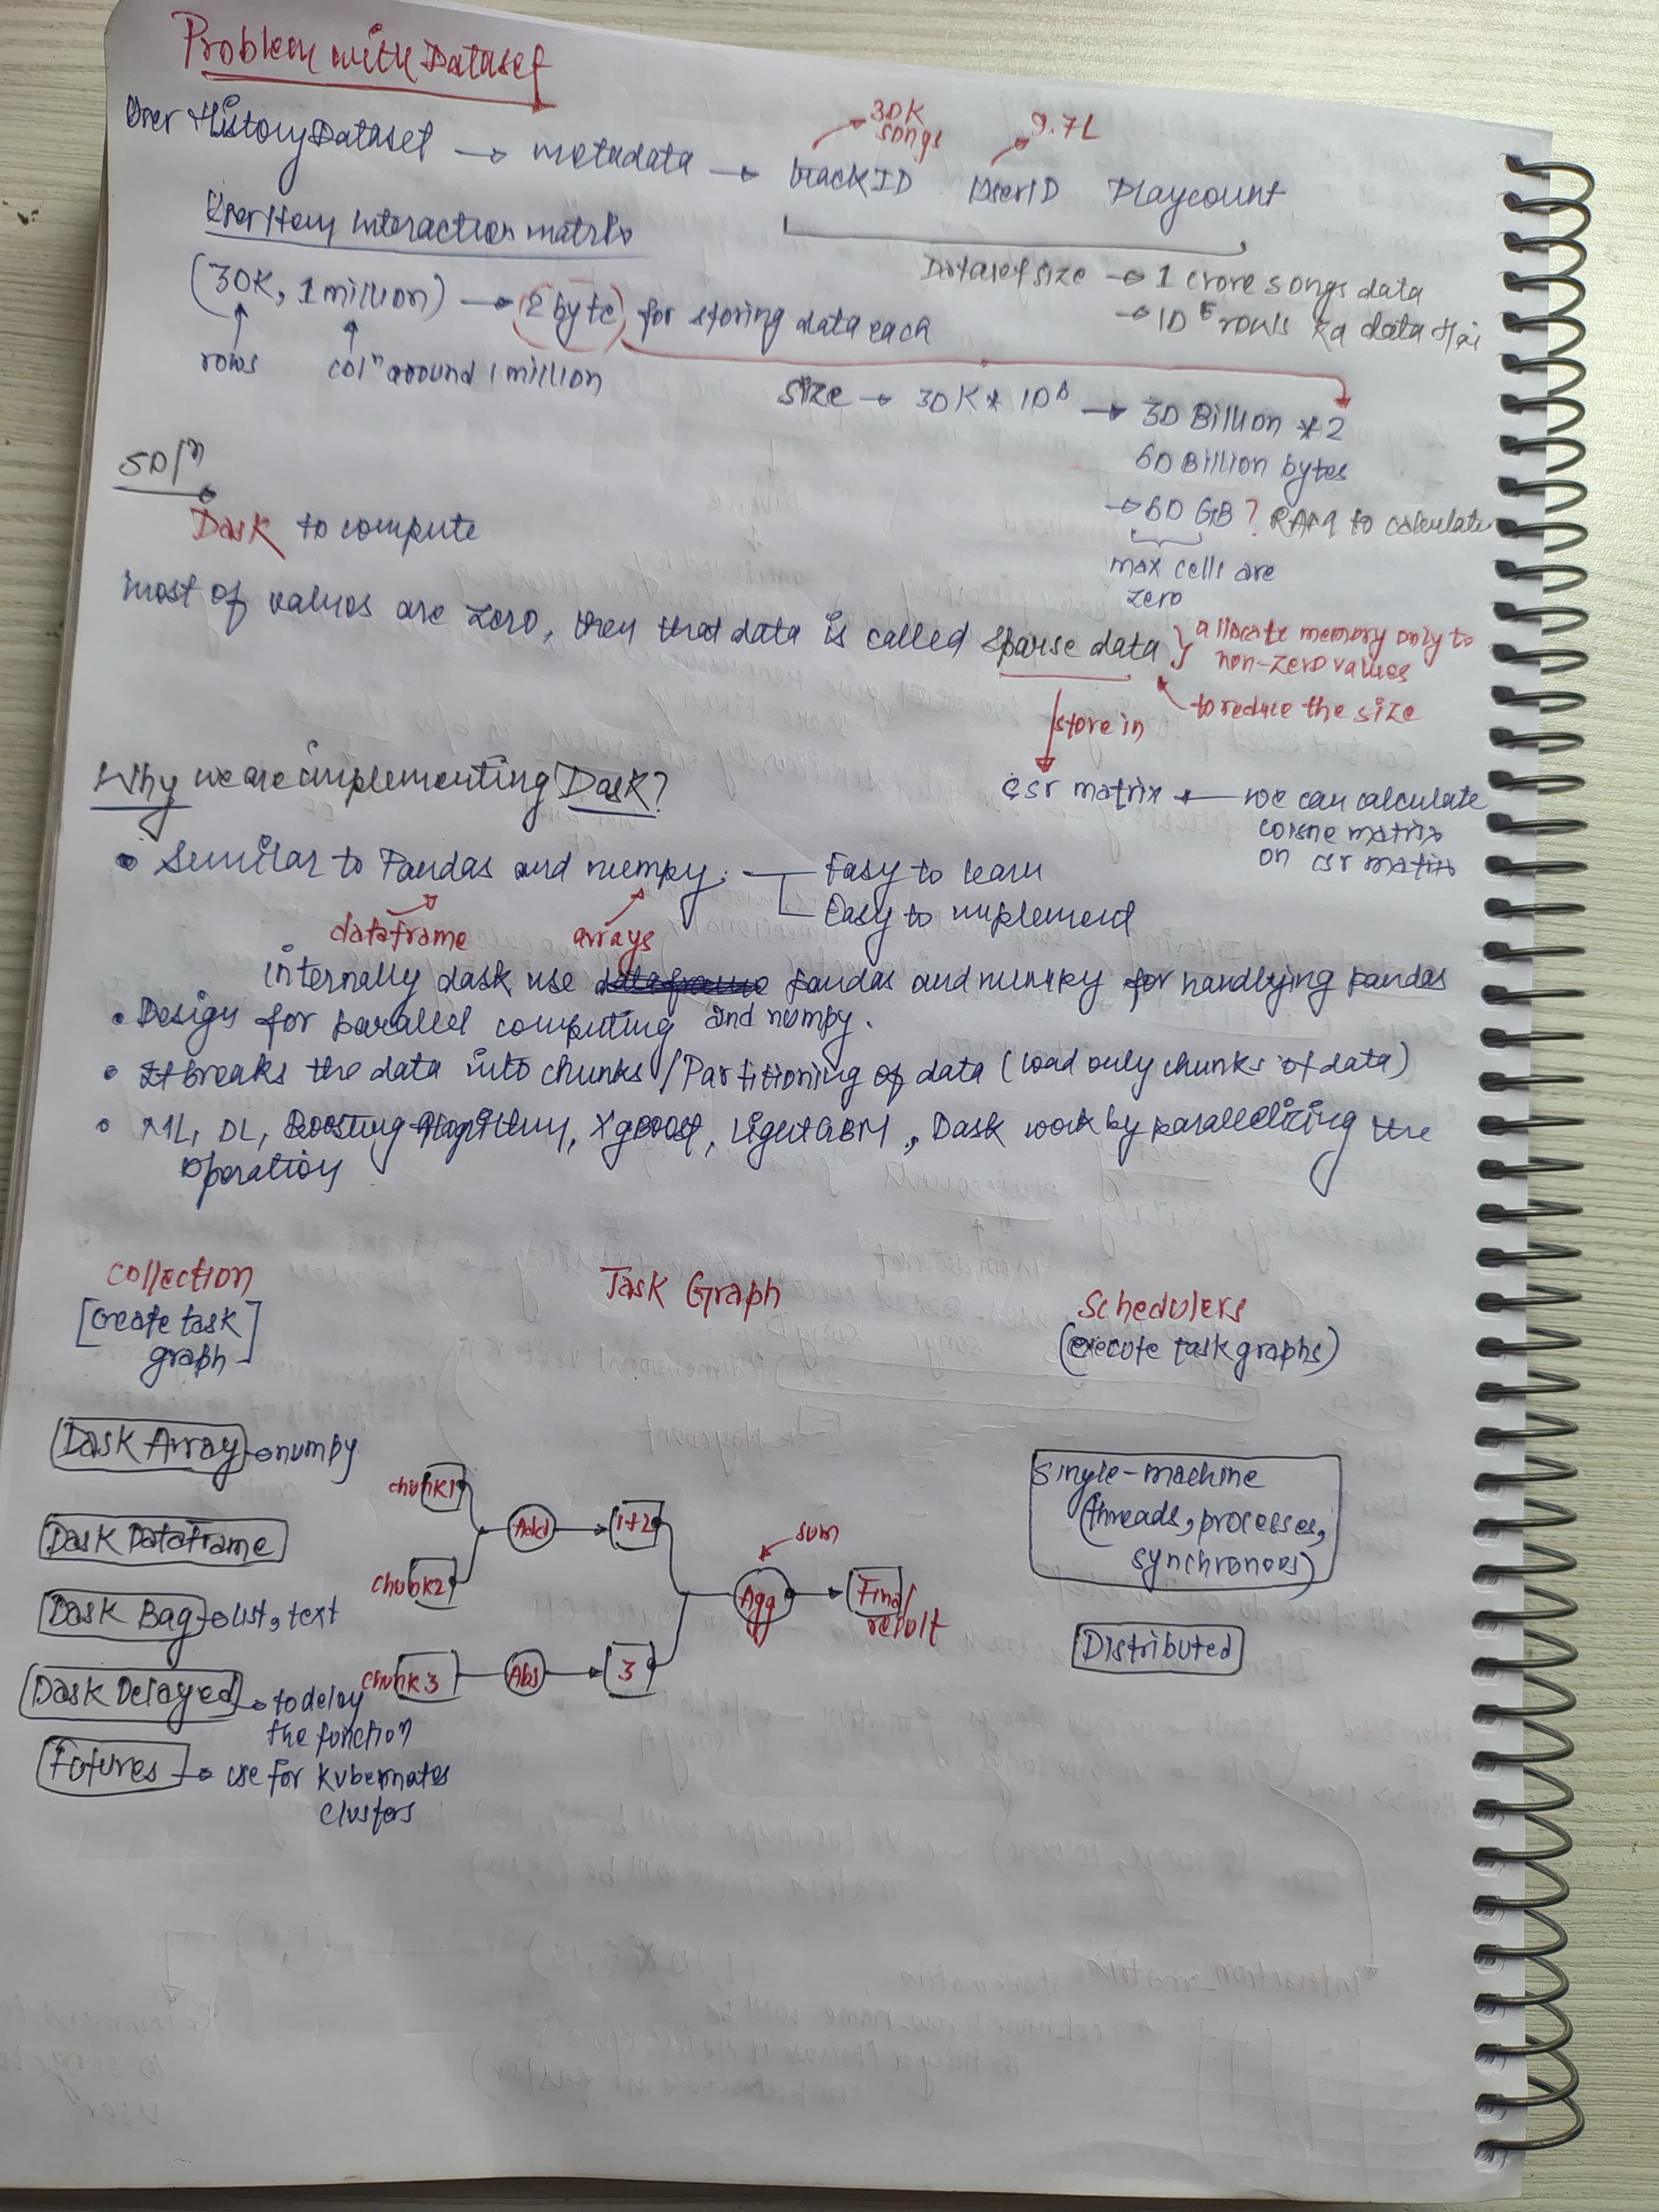 Problem with Dataset
User History Dataset → metadata → trackID UserID Playcount
30K songs
9.7L
User Item Interaction matrix
Dataset size → 1 crore songs data
→ 10 rows ka data Hai
(30K, 1 million) → 2 byte for storing data each
rows
colⁿ around 1 million
size → 30K * 10⁶ → 30 Billion * 2
60 Billion bytes
→ 60 GB? RAM to calculate
max cells are
zero
Solⁿ
Dask to compute
most of values are zero, then that data is called sparse data } allocate memory only to
non-zero values
to reduce the size
store in
csr matrix ← we can calculate
matrix
on csr matrix
Why we are implementing Dask?
• Similar to Pandas and numpy. — Easy to learn
Easy to implement
dataframe
arrays
internally dask use pandas and for pandas
and numpy.
• Design for parallel computing
• It breaks the data into chunks / Partitioning of data (load only chunks of data)
• ML, DL, Boosting Algorithm, Xgboost, LightGBM, Dask work by the
operation
Collection
[create task
graph]
Task Graph
Schedulers
(execute task graphs)
Dask Array → numpy
Dask Dataframe
Dask Bag → list, text
Dask Delayed → to delay
the function
Futures → use for kubernates
clusters
chunk1
chunk2
Add
1+2
sum
Agg
Final
result
chunk3
Abs
3
Single-machine
(threads, processes,
synchronoes)
Distributed